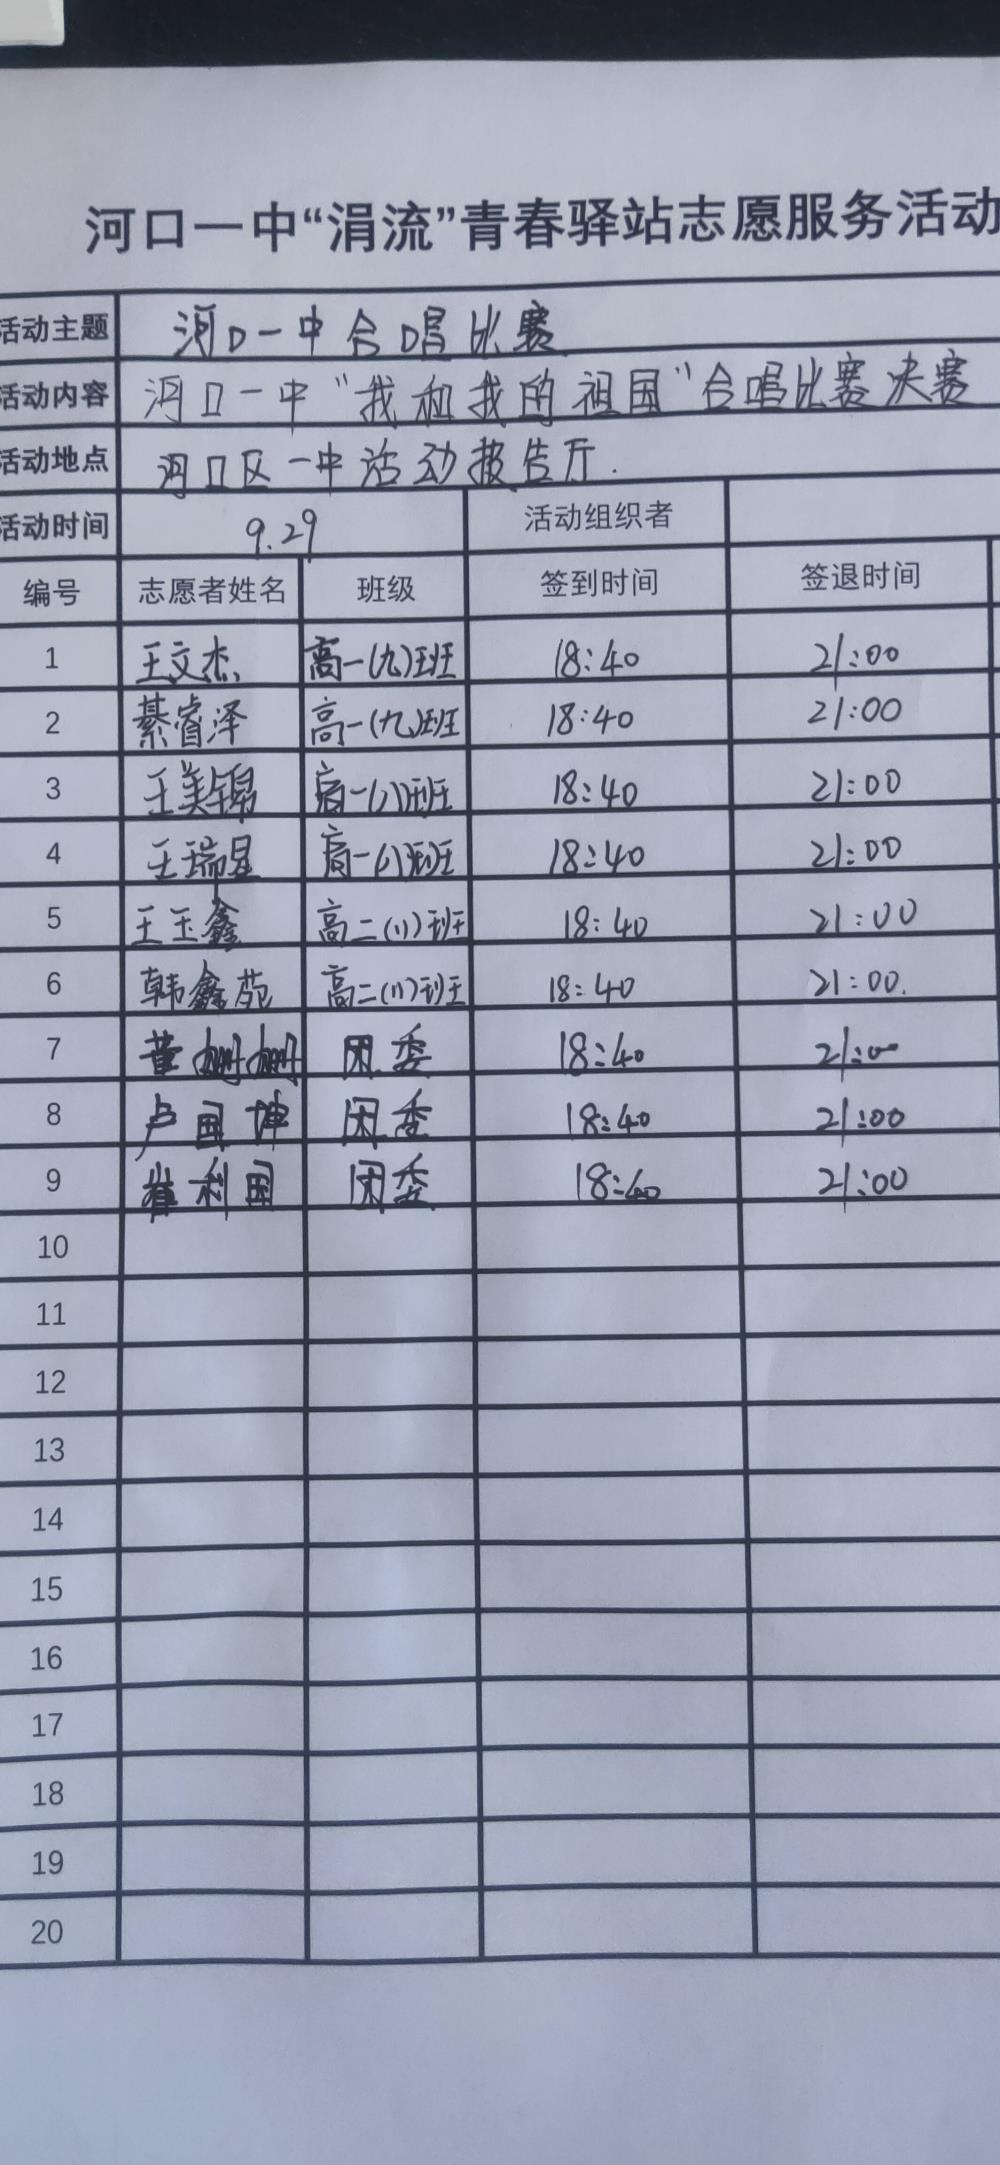 河口一中“涓流”青春驿站志愿服务活动
活动主题 河口一中合唱比赛
活动内容 河口一中“我和我的祖国”合唱比赛决赛
活动地点 河口区一中活动报告厅.
活动时间 9.29 活动组织者
编号 志愿者姓名 班级 签到时间 签退时间
1 王文杰 高一(九)班 18:40 21:00
2 綦睿泽 高一(九)班 18:40 21:00
3 王美锦 高一(八)班 18:40 21:00
4 王瑞昱 高一(八)班 18:40 21:00
5 王玉鑫 高二(11)班 18:40 21:00
6 韩鑫苑 高二(11)班 18:40 21:00.
7 董姗姗 团委 18:40 21:00
8 卢国坤 团委 18:40 21:00
9 崔利国 团委 18:40 21:00
10
11
12
13
14
15
16
17
18
19
20